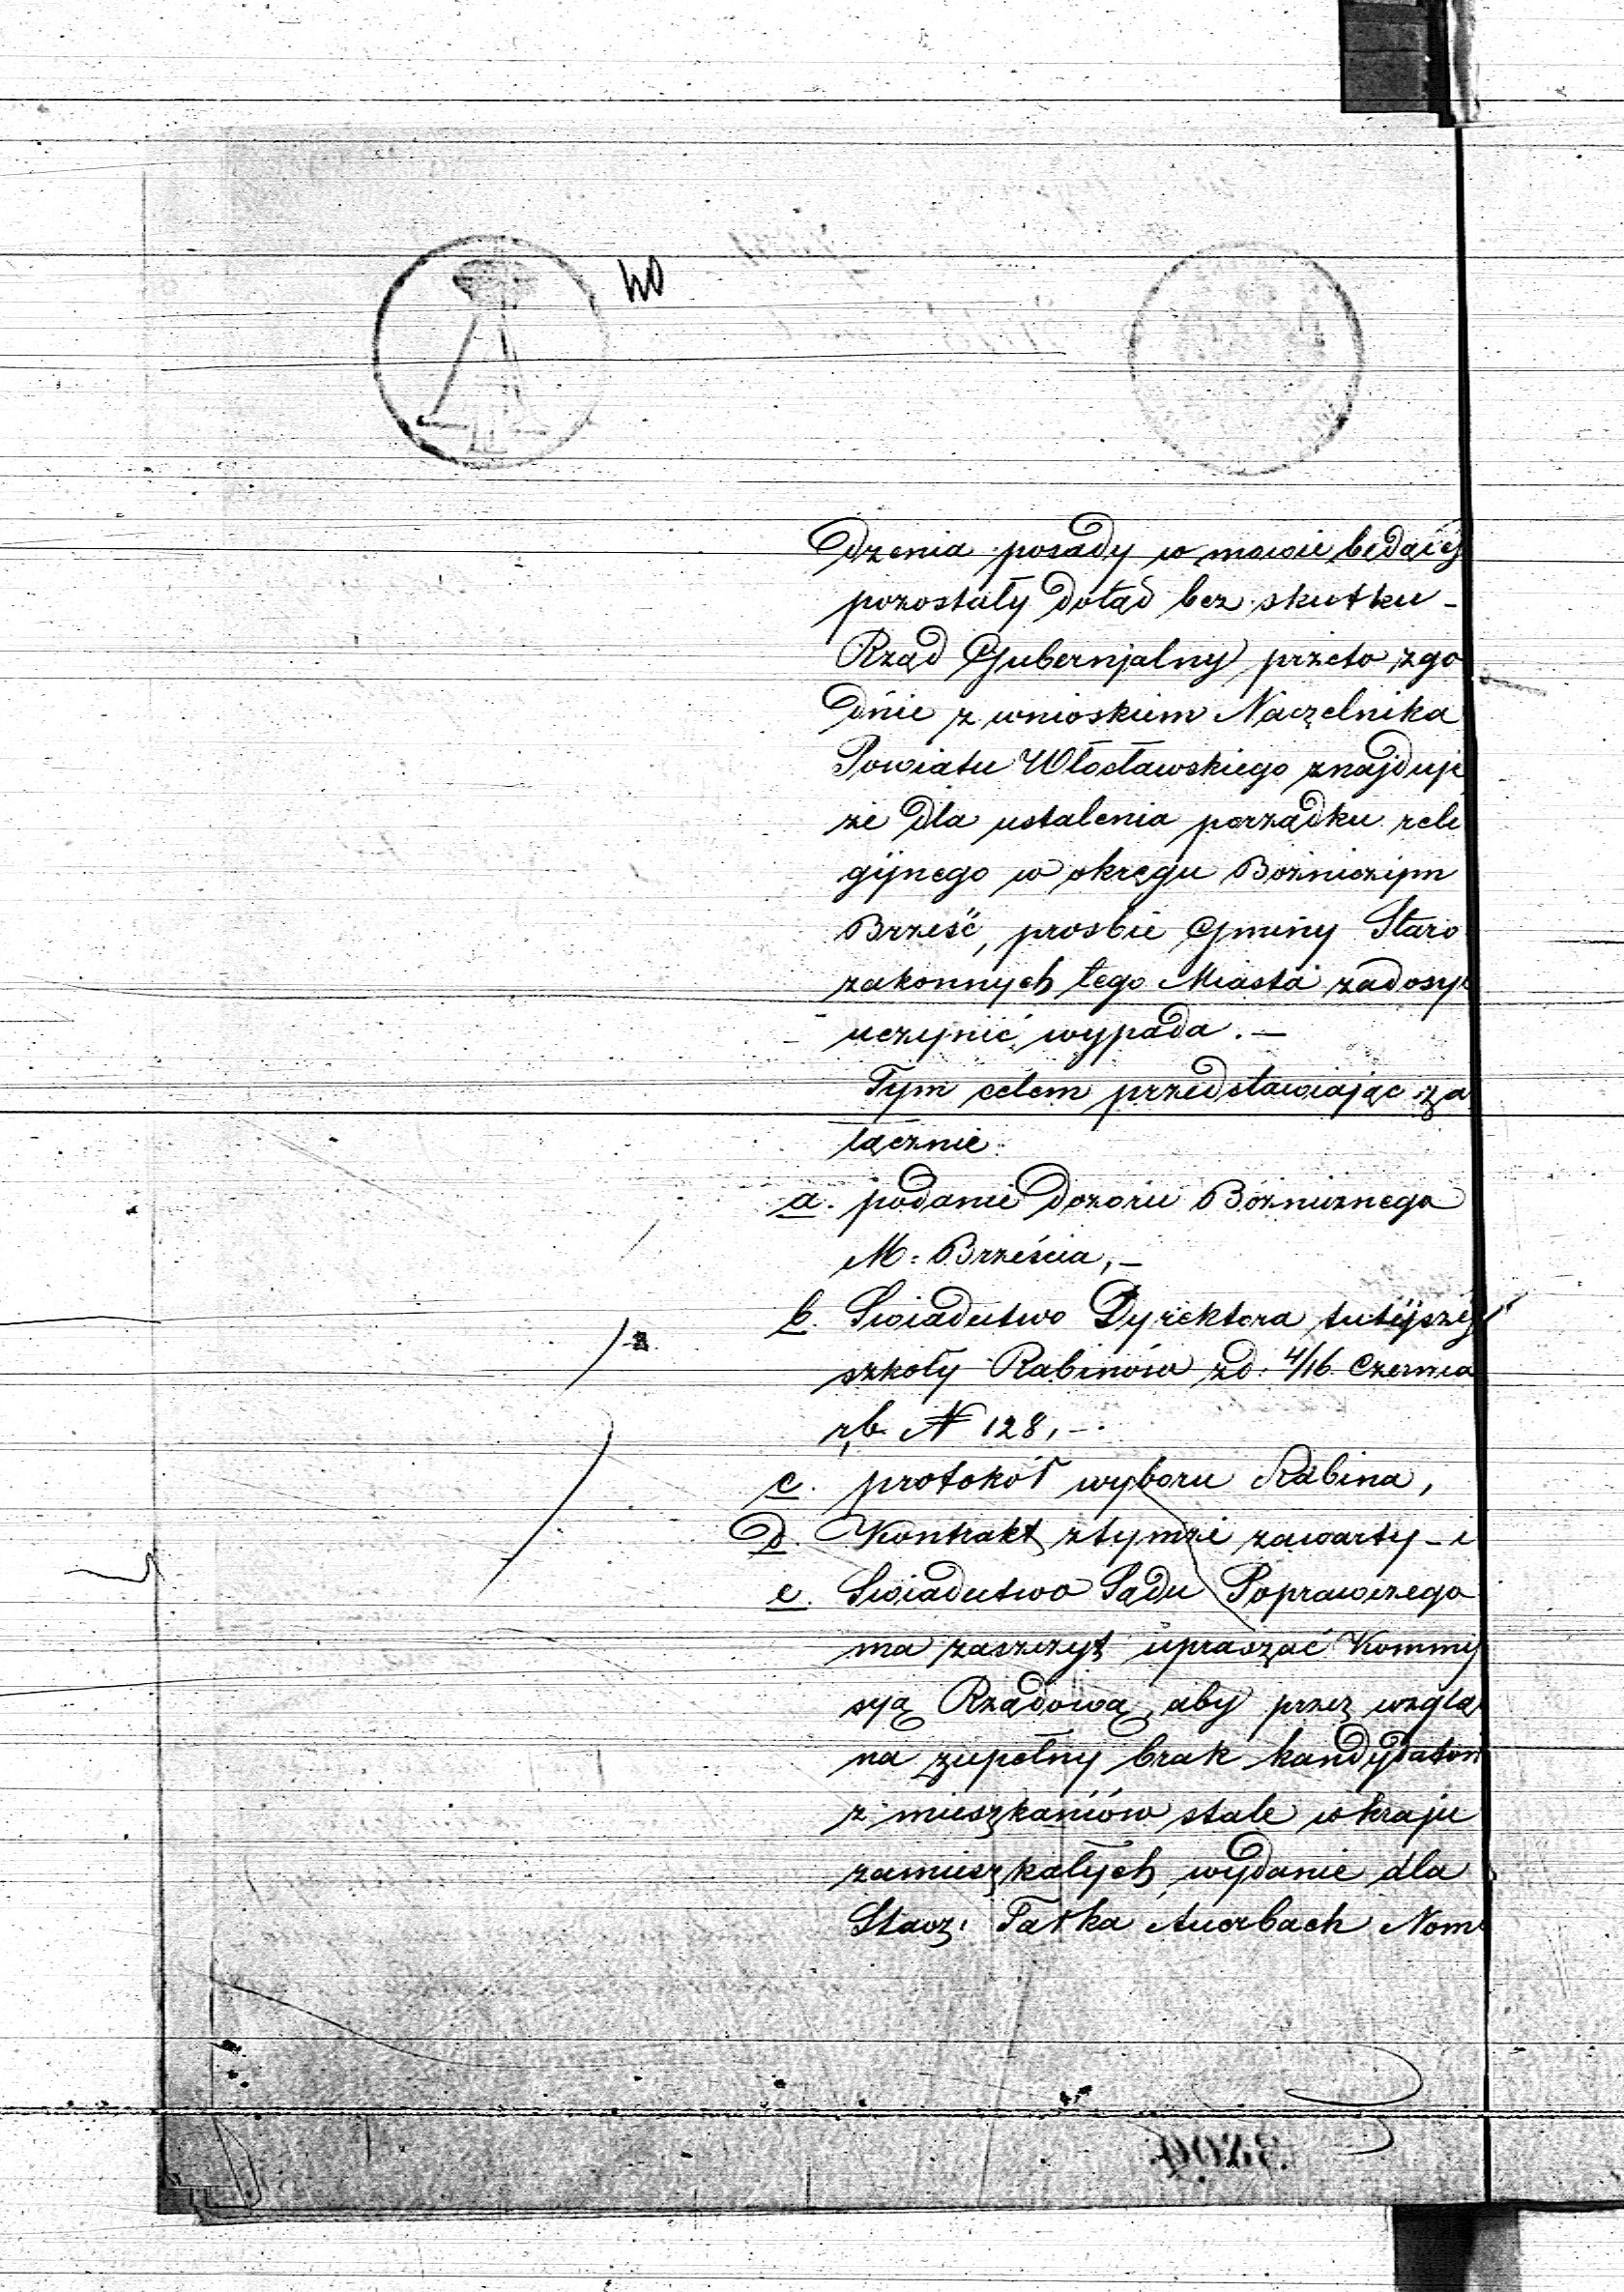 40
dzenia posady w mowie będącej
pozostały dotąd bez skutku –
Rząd Gubernjalny przeto zgo
dnie z wnioskiem Naczelnika
Powiatu Włocławskiego znajduje
że dla ustalenia porządku reli
gijnego w okręgu Bożniczym
Brześć, prośbie Gminy Staro
zakonnych tego Miasta zadosyć
uczynić wypada. –
Tym celem przedstawiając za
łącznie:
a. podanie Dozoru Bóżnicznego
M: Brześcia, –
b. Świadectwo Dyrektora tutejszej
szkoły Rabinów z d: 4/16 Czerwca
r, b. N 128, –
c. protokół wyboru Rabina,
d. Kontrakt z tymże zawarty – i
e. Świadectwo Sądu Poprawczego
ma zaszczyt upraszać Kommi
syą Rządową, aby przez wzglą
na zupełny brak kandydatów
z mieszkańców stale w kraju
zamieszkałych, wydanie dla
Starz: Auerbach Nom